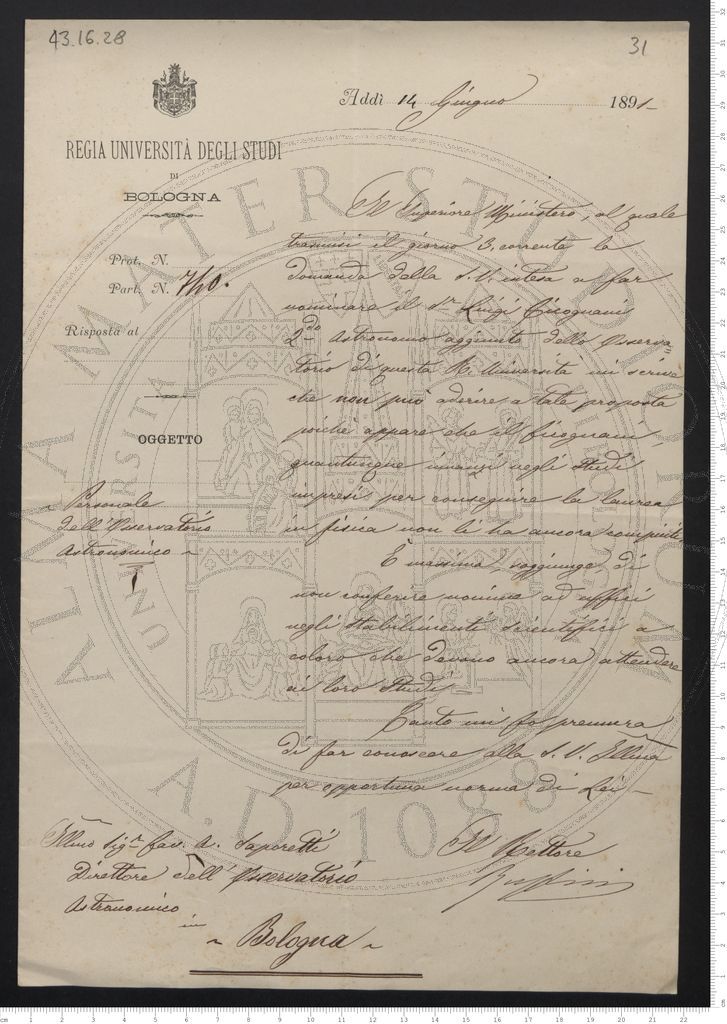 43.16.28
31
Addì 14 Giugno 1891-
REGIA UNIVERSITÀ DEGLI STUDI
DI
BOLOGNA
Prot. N.
Part. N. 740.
Risposta al
OGGETTO
Personale
dell'Osservatorio
Astronomico
Il Superiore Ministero, al quale
trasmisi il giorno 3 corrente la
domanda della S. V. intesa a far
nominare il Sr Luigi Cicognani
2do Astronomo aggiunto dello Osserva
torio di questa R. Università mi scrive
che non può aderire a tale proposta
poichè appare che il Cicognani
quantunque innanzi negli Studi
impresi per conseguire la laurea
in fisica non li ha ancora compiuti
È massima, soggiunge, di
non conferire nomine ad uffici
negli stabilimenti scientifici a
coloro che devono ancora attendere
ai loro Studi
Tanto mi fo premura
di far conoscere alla S. V. Illma
per opportuna norma di Lei -
Illmo Sigr Cav. A. Saporetti
Direttore dell'Osservatorio
Astronomico
in
Bologna
Il Rettore
Ruffini
ALMA MATER STUDIORUM
A.D. 1088